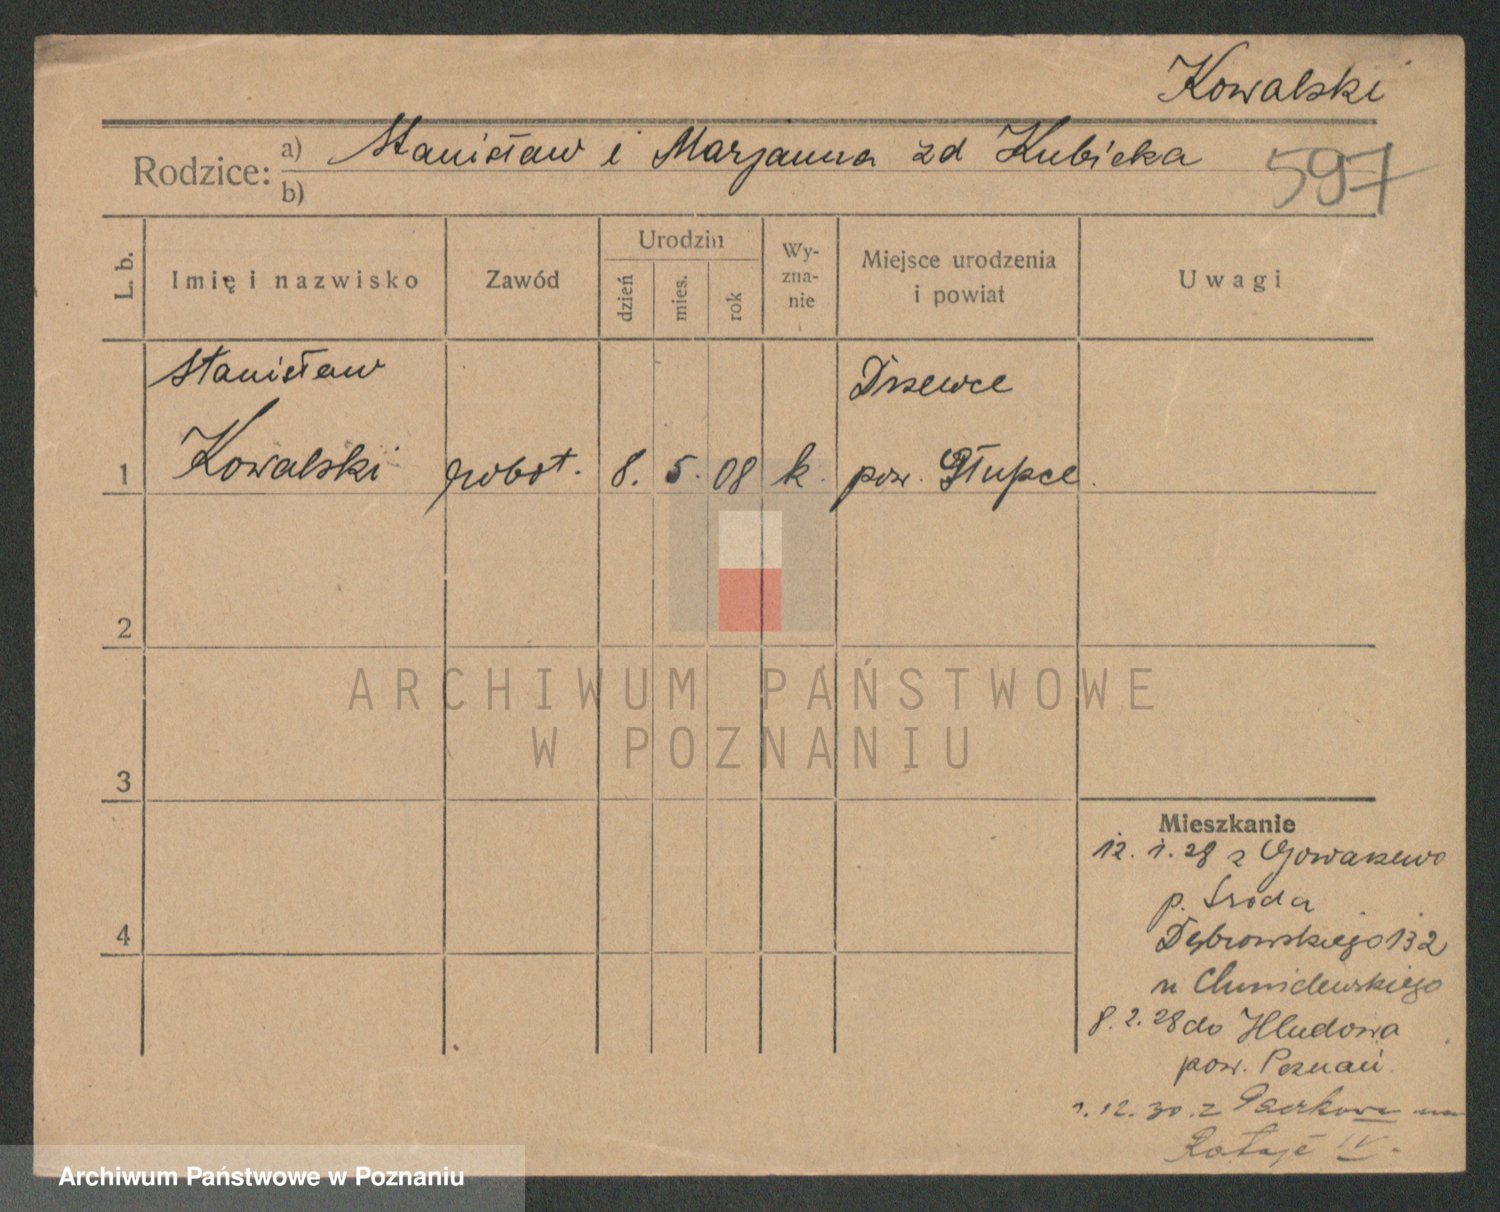 Kowalski
Rodzice: a) Stanisław i Marjanna zd Kubicka
b)
597
L. b.
Imię i nazwisko
Zawód
Urodzin
dzień
mies.
rok
Wy-
zna-
nie
Miejsce urodzenia
i powiat
Uwagi
Stanisław
Drzewce
1 Kowalski robot. 8. 5. 08 k. pow. Słupce.
2
ARCHIWUM PAŃSTWOWE
W POZNANIU
3
Mieszkanie
12. 1. 28 z
p. Środa
4
Dąbrowskiego 132
u Chmielewskiego
8. 2. 28 do
pow. Poznań.
1. 12. 30. z
Rataje IV.
Archiwum Państwowe w Poznaniu